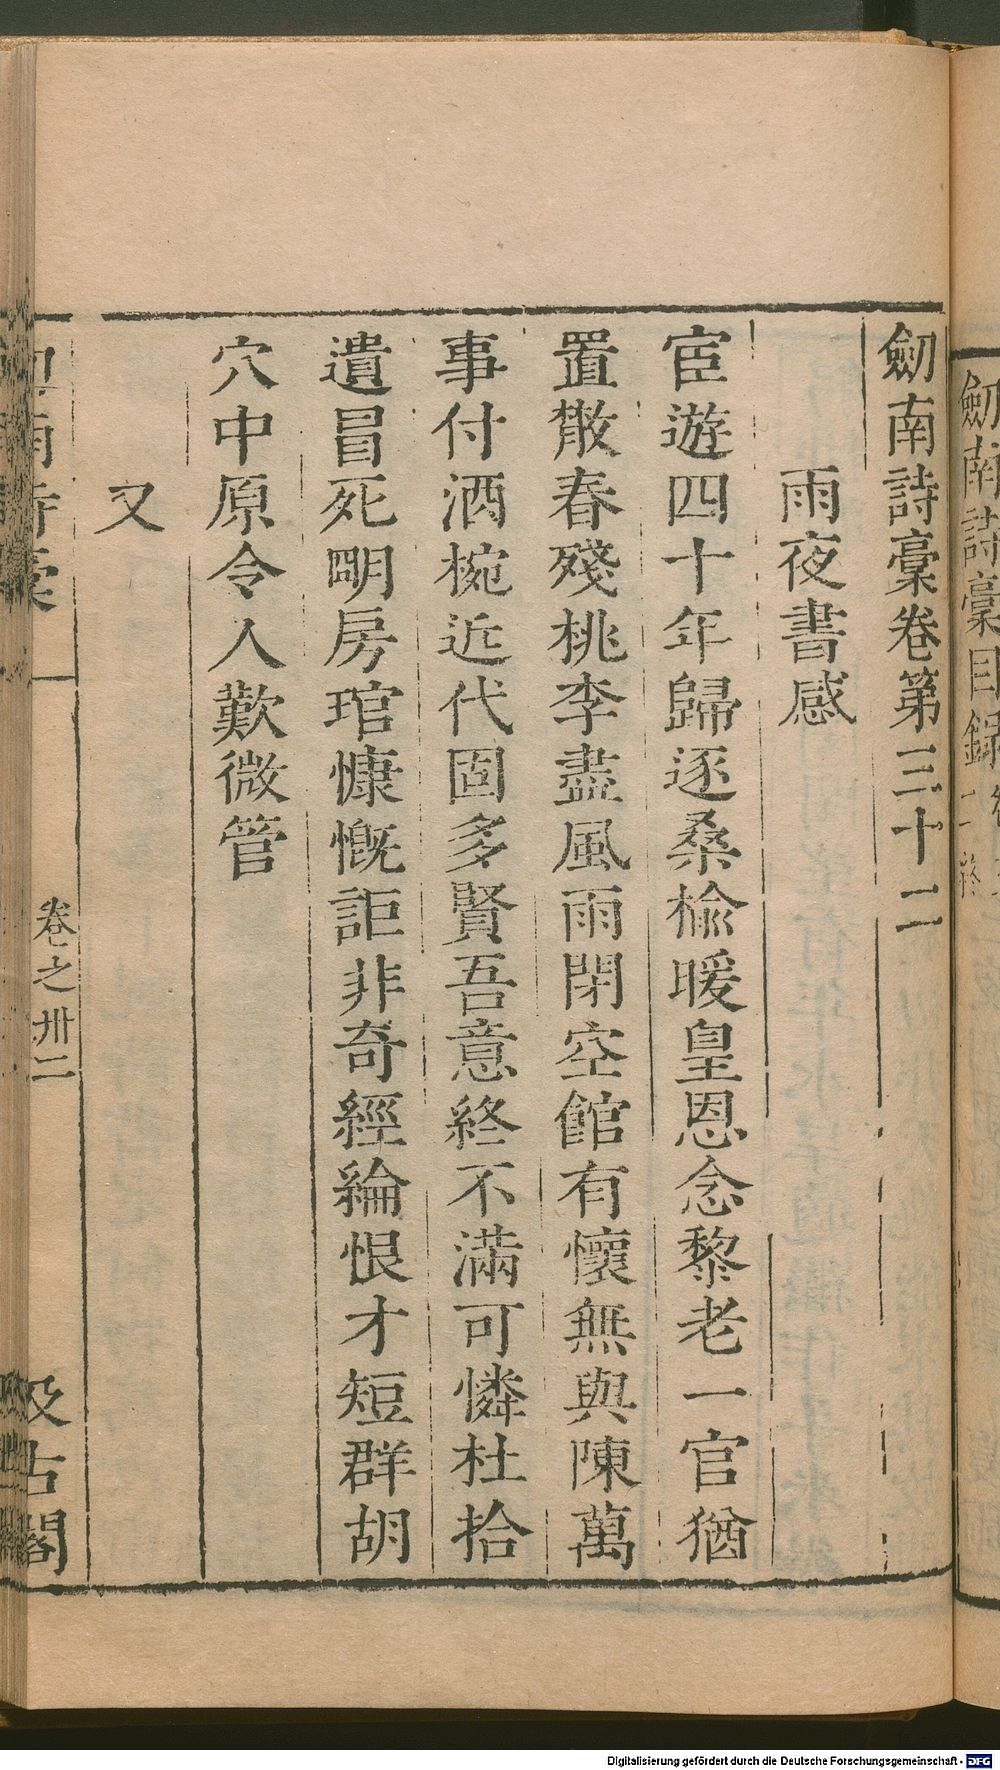 劒南詩藁目錄
劒南詩藁卷第三十二
雨夜書感
宦遊四十年歸逐桑榆暖皇恩念黎老一官猶
置散春殘桃李盡風雨閉空館有懷無與陳萬
事付酒椀近代固多賢吾意終不滿可憐杜拾
遺冒死明房琯慷慨詎非奇經綸恨才短群胡
穴中原令人歎微管
又
卷之卅二
汲古閣
Digitalisierung gefördert durch die Deutsche Forschungsgemeinschaft - DFG